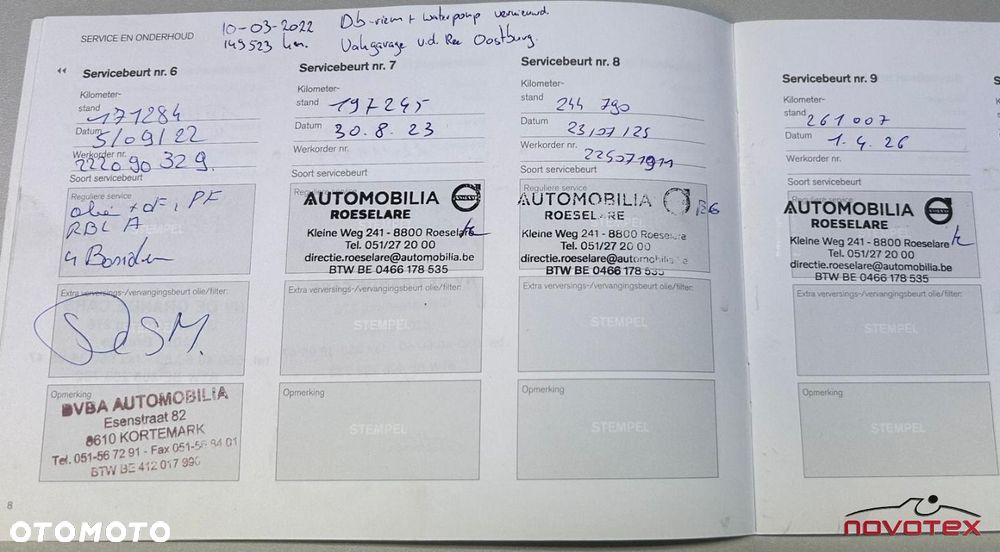 SERVICE EN ONDERHOUD
10-03-2022 Db-riem + waterpomp vernieuwd.
149523 km. Vakgarage v.d. Ree Oostburg.
Servicebeurt nr. 6
Kilometer-
stand 171284
Datum 5/09/22
Werkorder nr.
222090329.
Soort servicebeurt
Reguliere service
olie + oF, PF
RBL A
4 Banden
Extra verversings-/vervangingsbeurt olie/filter:
SM.
Opmerking
BVBA AUTOMOBILIA
Esenstraat 82
8610 KORTEMARK
Tel. 051-56 72 91 - Fax 051-56 84 01
BTW BE 412 017 990
8
Servicebeurt nr. 7
Kilometer-
stand 197245
Datum 30.8.23
Werkorder nr.
Soort servicebeurt
Reguliere service
AUTOMOBILIA
ROESELARE
VOLVO
Kleine Weg 241 - 8800 Roeselare
Tel. 051/27 20 00
directie.roeselare@automobilia.be
BTW BE 0466 178 535
Extra verversings-/vervangingsbeurt olie/filter:
STEMPEL
Opmerking
STEMPEL
Servicebeurt nr. 8
Kilometer-
stand 244 790
Datum 23/07/25
Werkorder nr.
225071911
Soort servicebeurt
Reguliere service
AUTOMOBILIA
ROESELARE
Kleine Weg 241 - 8800 Roeselare
Tel. 051/27 20 00
directie.roeselare@automobilia.be
BTW BE 0466 178 535
Extra verversings-/vervangingsbeurt olie/filter:
STEMPEL
Opmerking
STEMPEL
Servicebeurt nr. 9
Kilometer-
stand 261007
Datum 1.4.26
Werkorder nr.
Soort servicebeurt
Reguliere service
AUTOMOBILIA
ROESELARE
VOLVO
Kleine Weg 241 - 8800 Roeselare
Tel. 051/27 20 00
directie.roeselare@automobilia.be
BTW BE 0466 178 535
Extra verversings-/vervangingsbeurt olie/filter:
STEMPEL
Opmerking
STEMPEL
OTOMOTO
novotex